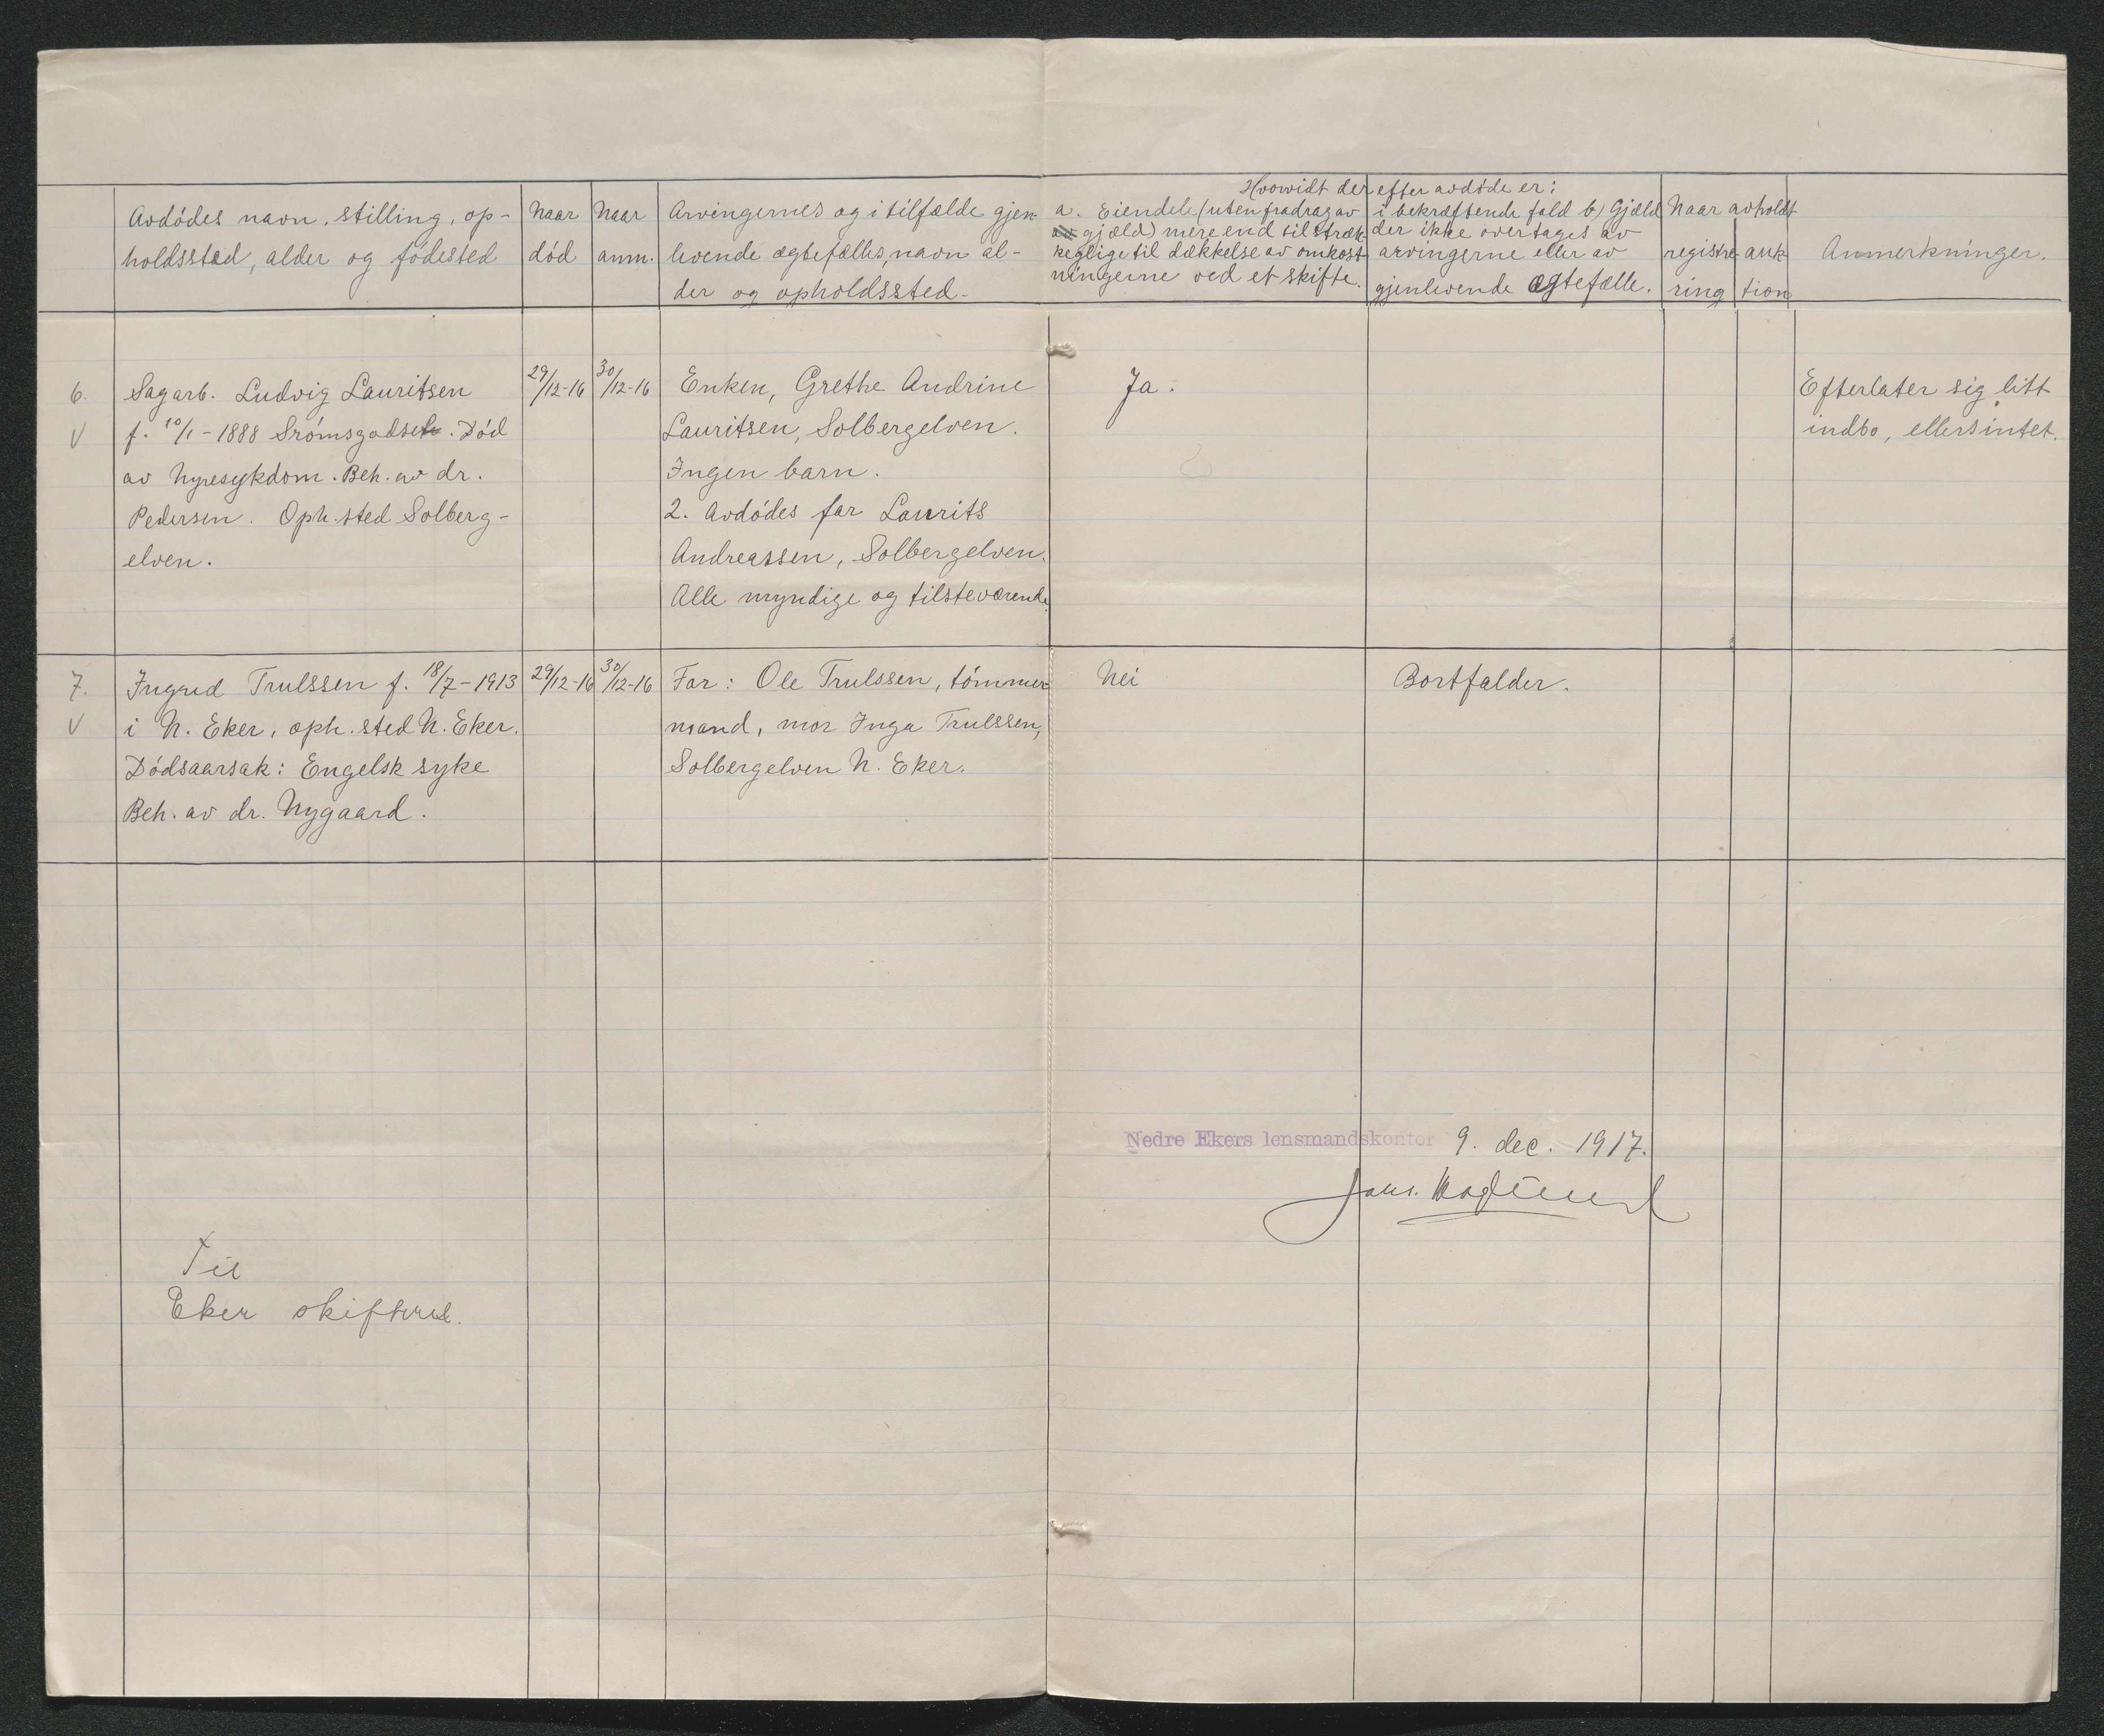 Hvorvidt der efter avdøde er:
Avdødes navn, stilling, op-
holdssted, alder og fødested
Naar
død
Naar
anm.
Arvingernes og i tilfælde gjen-
levende ægtefælles, navn al-
der og opholdssted.
a. Eiendele (uten fradrag av
gjæld) mere end tilstræk-
kelige til dækkelse av omkost-
ningerne ved et skifte.
i bekræftende fald b) Gjæld
der ikke overtages av
arvingerne eller av
gjenlevende ægtefælle.
Naar avholdt
registre-
ring
auk-
tion
Anmerkninger.
6.
V
Sagarb. Ludvig Lauritsen
f. 10/1-1888 Strømsgodset. Død
av Nyresykdom. Beh. av dr.
Pedersen. Oph.sted Solberg-
elven.
29/12-16
30/12-16
Enken, Grethe Andrine
Lauritsen, Solbergelven.
Ingen barn.
2. Avdødes far Laurits
Andreassen, Solbergelven.
Alle myndige og tilsteværende.
Ja.
Efterlater sig litt
indbo, ellers intet.
7.
V
Ingrid Trulssen f. 18/7-1913
i N. Eker, oph.sted N. Eker.
Dødsaarsak: Engelsk syke
Beh. av dr. Nygaard.
29/12-16
30/12-16
Far: Ole Trulssen, tømmer
mand, mor Inga Trulssen,
Solbergelven N. Eker.
Nei
Bortfalder.
Nedre Ekers lensmandskontor 9. dec. 1917.
Til
Eker skifteret.